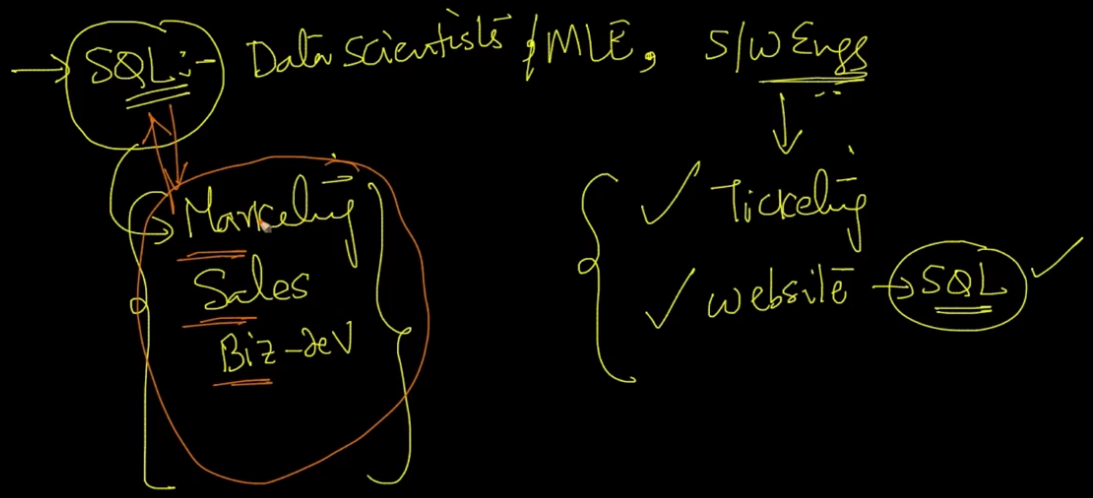 SQL:- Data Scientists / MLE, S/W Engs
Marketing
Sales
Biz-dev
Ticketing
website → SQL